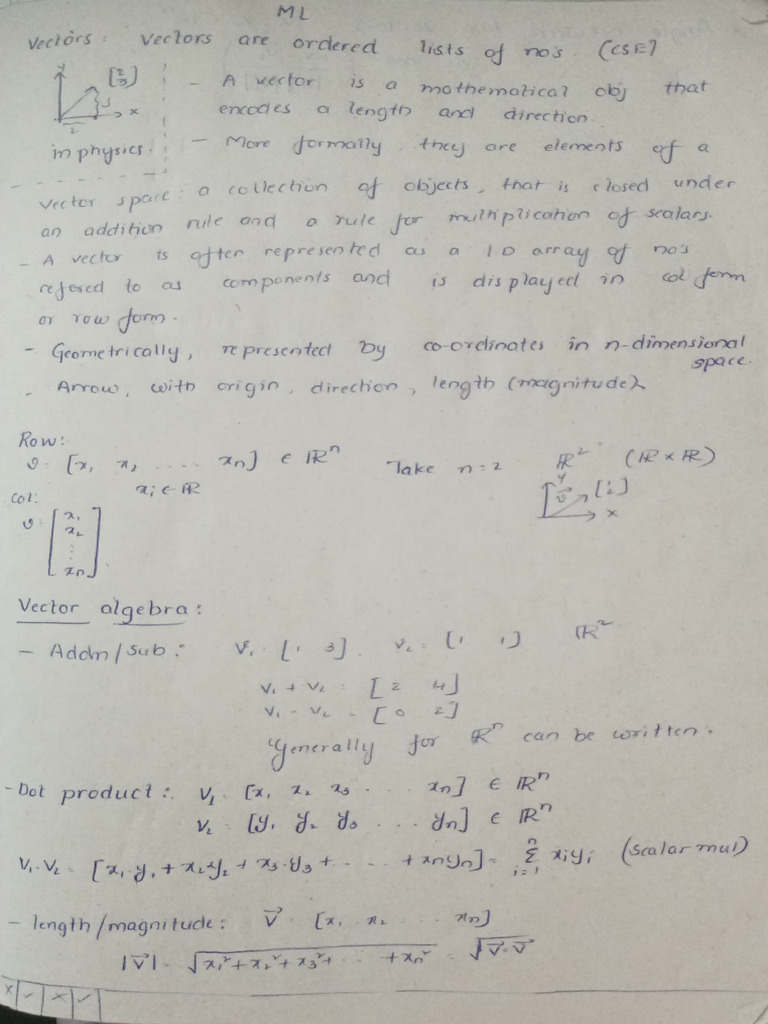 ML
Vectors: Vectors are ordered lists of no's. (CSE)
y [2 3] - A vector is a mathematical obj that
3 x encodes a length and direction.
2
in physics. - More formally, they are elements of a
vector space: a collection of objects, that is closed under
an addition rule and a rule for multiplication of scalars.
- A vector is often represented as a 1-D array of no's
refered to as components and is displayed in col form
or row form.
- Geometrically, represented by co-ordinates in n-dimensional
space.
- Arrow, with origin, direction, length (magnitude)
Row:
v = [x₁ x₂ .... xn] ∈ ℝⁿ Take n=2 ℝ² (ℝ × ℝ)
xi ∈ ℝ
y v x
col:
v = [x₁ x₂ ⋮ xn]
Vector algebra:
- Addn/sub: v₁ = [1 3]. v₂ = [1 1] ℝ²
v₁ + v₂ = [2 4]
v₁ - v₂ = [0 2]
Generally for ℝⁿ can be written.
- Dot product: v₁ = [x₁ x₂ x₃ .... xn] ∈ ℝⁿ
v₂ = [y₁ y₂ y₃ .... yn] ∈ ℝⁿ
v₁·v₂ = [x₁·y₁ + x₂·y₂ + x₃·y₃ + .... + xnyn] = Σ i=1 n xiyi (scalar mul)
- length/magnitude: v⃗ = [x₁ x₂ .... xn]
|v⃗| = √(x₁² + x₂² + x₃² + .... + xn²) = √(v⃗·v⃗)